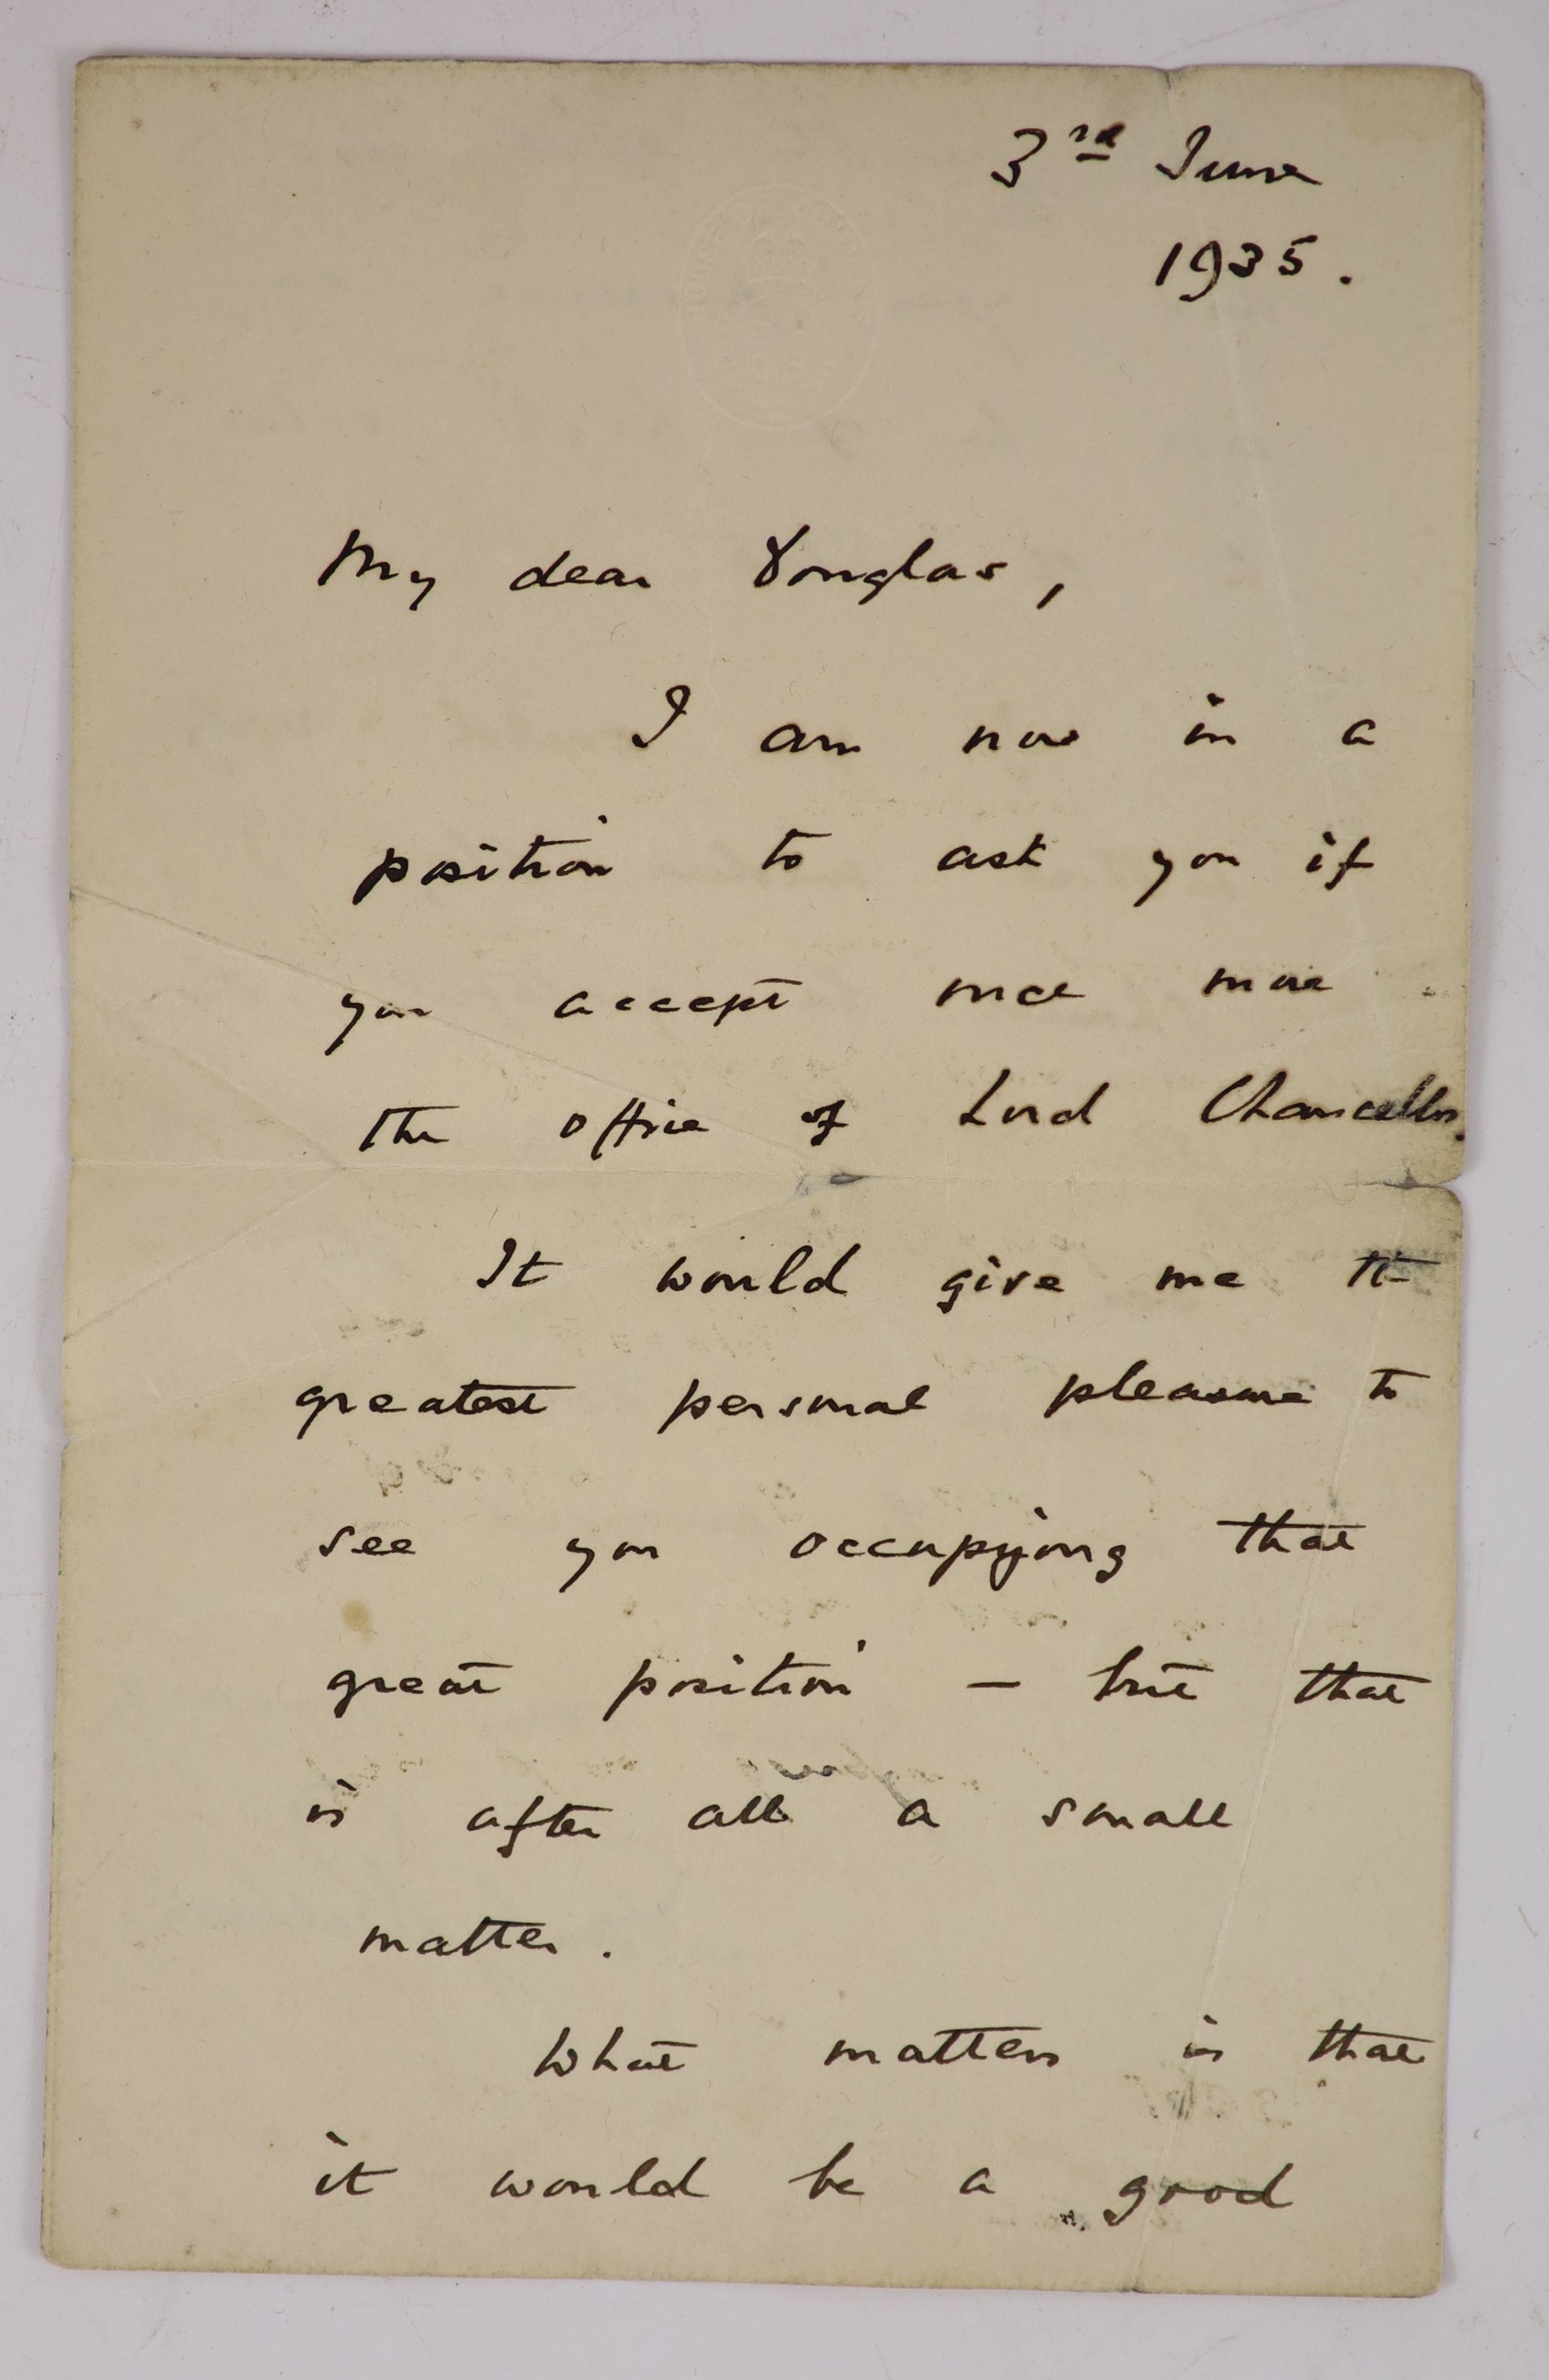 3rd June
1935.
My dear Douglas,
I am now in a
position to ask you if
you accept once more
the office of Lord Chancellor.
It would give me the
greatest personal pleasure to
see you occupying that
great position — but that
is after all a small
matter.
What matters is that
it would be a good